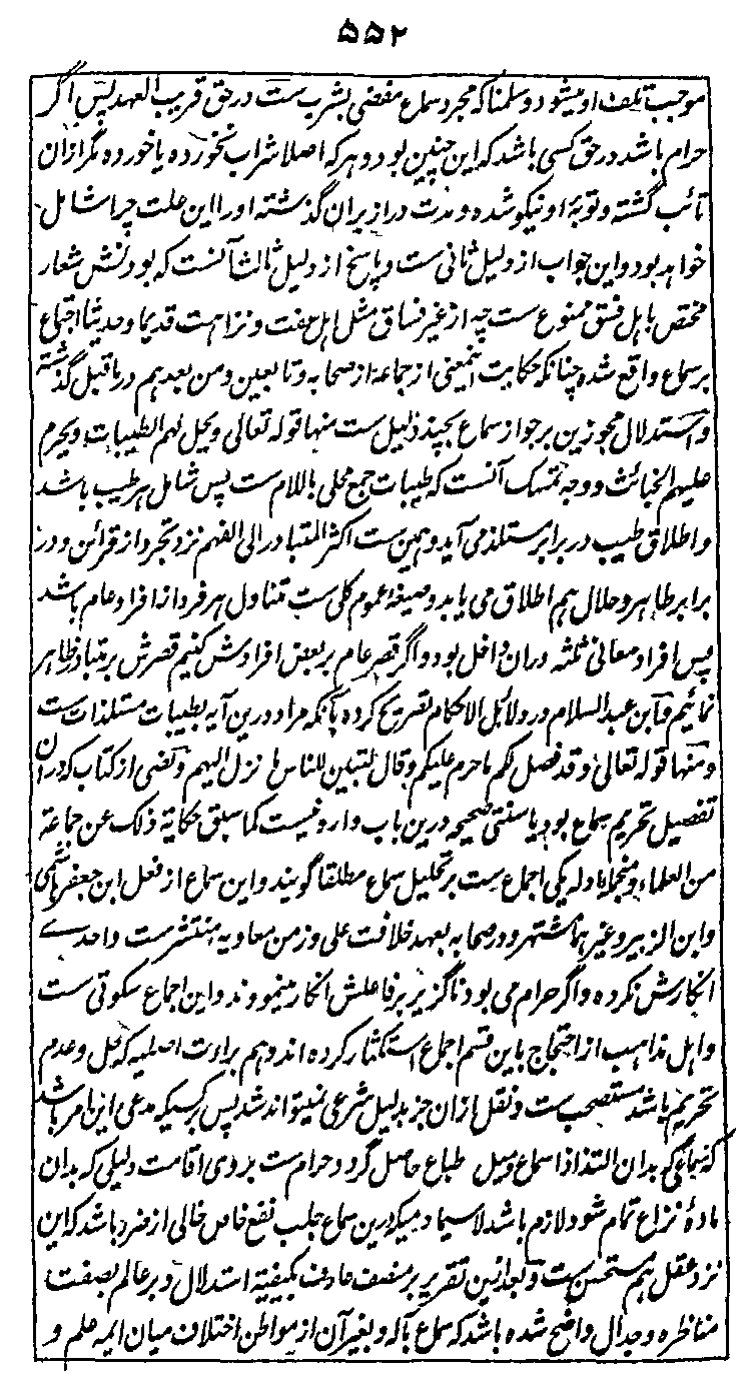 ۵۵۲
موجب تلف او میشود و سلمنا که مجرد سماع مفضی بشرب ست در حق قریب العهد پس اگر
حرام باشد در حق کسی باشد که این چنین بود و هر که اصلا شراب نخورده یا خورده مگر ازان
تائب گشته و توبهٔ او نیکو شده و مدت دراز بران گذشته او را این علت چرا شامل
خواهد بود و این جواب از دلیل ثانی ست و پاسخ از دلیل ثالث آنست که بودنش شعار
مختص باهل فسق ممنوع ست چه از غیر فساق مثل اهل عفت و نزاهت قدیما و حدیثا اجتماع
بر سماع واقع شده چنانکه حکایت اینمعنی از جماعهٔ از صحابه و تابعین و من بعدهم در ماقبل گذشته
و استدلال مجوزین بر جواز سماع بچند دلیل ست منها قوله تعالی و یحل لهم الطیبات و یحرم
علیهم الخبائث و وجه تمسک آنست که طیبات جمع محلی باللام ست پس شامل هر طیب باشد
و اطلاق طیب در برابر مستلذ می آید و همین ست اکثر المتبادر الی الفهم نزد تجرد از قرائن و در
برابر طاهر و حلال هم اطلاق می یابد و صیغهٔ عموم کلی ست متناول هر فرد از افراد عام باشد
پس افراد معانی ثلثه دران داخل بود و اگر قصر عام بر بعض افرادش کنیم قصرش بر متبادر ظاهر
نمائیم و ابن عبد السلام در دلائل الاحکام تصریح کرده بآنکه مراد درین آیه بطیبات مستلذات ست
و منها قوله تعالی و قد فصل لکم ما حرم علیکم و قال لتبین للناس ما نزل الیهم و نصی از کتاب که دران
تفصیل تحریم سماع بود یا سنتی صحیحه درین باب وارد نیست کما سبق حکایة ذلک عن جماعة
من العلماء و منجمله ادله یکی اجماع ست بر تحلیل سماع مطلقا گویند و این سماع از فعل ابن جعفر هاشمی
و ابن الزبیر و غیرهما مشتهر و در صحابه بعهد خلافت علی و زمن معاویه منتشر ست و احدے
انکارش نکرده و اگر حرام می بود ناگزیر بر فاعلش انکار مینمودند و این اجماع سکوتی ست
و اهل مذاهب از احتجاج باین قسم اجماع استکثار کرده اند و هم براءت اصلیه که حل و عدم
تحریم باشد مستصحب ست و نقل ازان جز بدلیل شرعی نمیتواند شد پس بر کسیکه مدعی این امر باشد
که سماعی که بدان التذاذ اسماع و میل طباع حاصل گردد حرام ست بر وی اقامت دلیلی که بدان
مادهٔ نزاع تمام شود لازم باشد لاسیما دمیکه درین سماع جلب نفع خاص خالی از ضرر باشد که این
نزد عقل هم مستحسن ست و بعد ازین تقریر بر منصف عارف بکیفیة استدلال و بر عالم بصفت
مناظره و جدال واضح شده باشد که سماع بآله و بغیر آن از مواطن اختلاف میان ایمه علم و